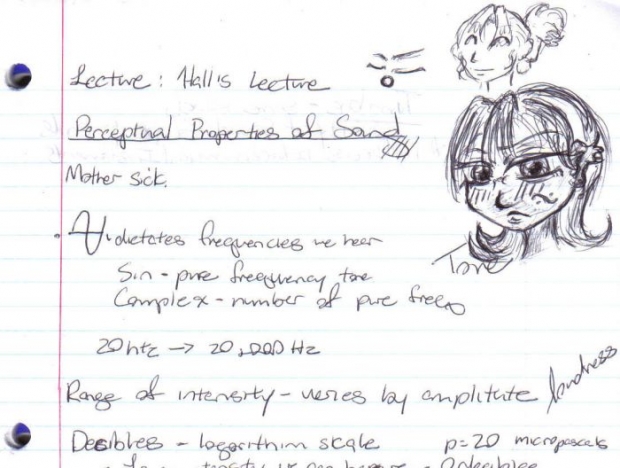 Lecture : Hall's Lecture
Perceptual Properties of Sound
Mother sick.
dictates frequencies we hear
Tone
Sin - pure frequency tone
Complex - number of pure freqs
20 htz → 20,000 Hz
Range of intensity - veries by amplitute loudness
Desibles - logorithim scale p=20 micropascals